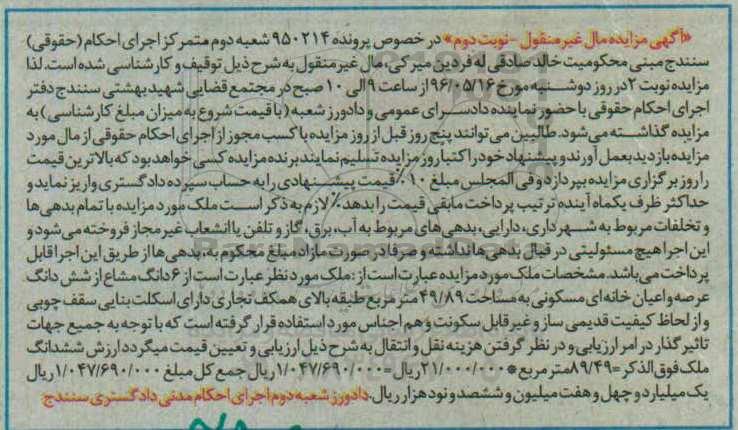 «آگهی مزایده مال غیرمنقول -نوبت دوم» در خصوص پرونده ۹۵۰۲۱۴ شعبه دوم متمرکز اجرای احکام (حقوقی)
سنندج مبنی محکومیت خالد صادقی له فردین میرکی، مال غیرمنقول به شرح ذیل توقیف و کارشناسی شده است. لذا
مزایده نوبت ۲ در روز دوشنبه مورخ ۹۶/۰۵/۱۶ از ساعت ۹ الی ۱۰ صبح در مجتمع قضایی شهید بهشتی سنندج دفتر
اجرای احکام حقوقی با حضور نماینده دادسرای عمومی و دادورز شعبه (با قیمت شروع به میزان مبلغ کارشناسی) به
مزایده گذاشته می‌شود. طالبین می‌توانند پنج روز قبل از روز مزایده با کسب مجوز از اجرای احکام حقوقی از مال مورد
مزایده بازدید بعمل آورند و پیشنهاد خود را کتبا روز مزایده تسلیم نمایند برنده مزایده کسی خواهد بود که بالاترین قیمت
را روز برگزاری مزایده بپردازد و فی المجلس مبلغ ۱۰٪ قیمت پیشنهادی را به حساب سپرده دادگستری واریز نماید و
حداکثر ظرف یکماه آینده ترتیب پرداخت مابقی قیمت را بدهد٪ لازم به ذکر است ملک مورد مزایده با تمام بدهی ها
و تخلفات مربوط به شهرداری، دارایی، بدهی های مربوط به آب، برق، گاز و تلفن یا انشعاب غیرمجاز فروخته می‌شود و
این اجرا هیچ مسئولیتی در قبال بدهی ها نداشته و صرفا در صورت مازاد مبلغ محکوم به، بدهی ها از طریق این اجرا قابل
پرداخت می‌باشد. مشخصات ملک مورد مزایده عبارت است از: ملک مورد نظر عبارت است از ۶ دانگ مشاع از شش دانگ
عرصه و اعیان خانه ای مسکونی به مساحت ۴۹/۸۹ متر مربع طبقه بالای همکف تجاری دارای اسکلت بنایی سقف چوبی
و از لحاظ کیفیت قدیمی ساز و غیرقابل سکونت و هم اجناس مورد استفاده قرار گرفته است که با توجه به جمیع جهات
تاثیرگذار در امر ارزیابی و در نظر گرفتن هزینه نقل و انتقال به شرح ذیل ارزیابی و تعیین قیمت میگردد ارزش ششدانگ
ملک فوق الذکر=۸۹/۴۹ متر مربع *۲۱/۰۰۰/۰۰۰ ریال=۱/۰۴۷/۶۹۰/۰۰۰ ریال جمع کل مبلغ ۱/۰۴۷/۶۹۰/۰۰۰ ریال
یک میلیارد و چهل و هفت میلیون و ششصد و نود هزار ریال. دادورز شعبه دوم اجرای احکام مدنی دادگستری سنندج